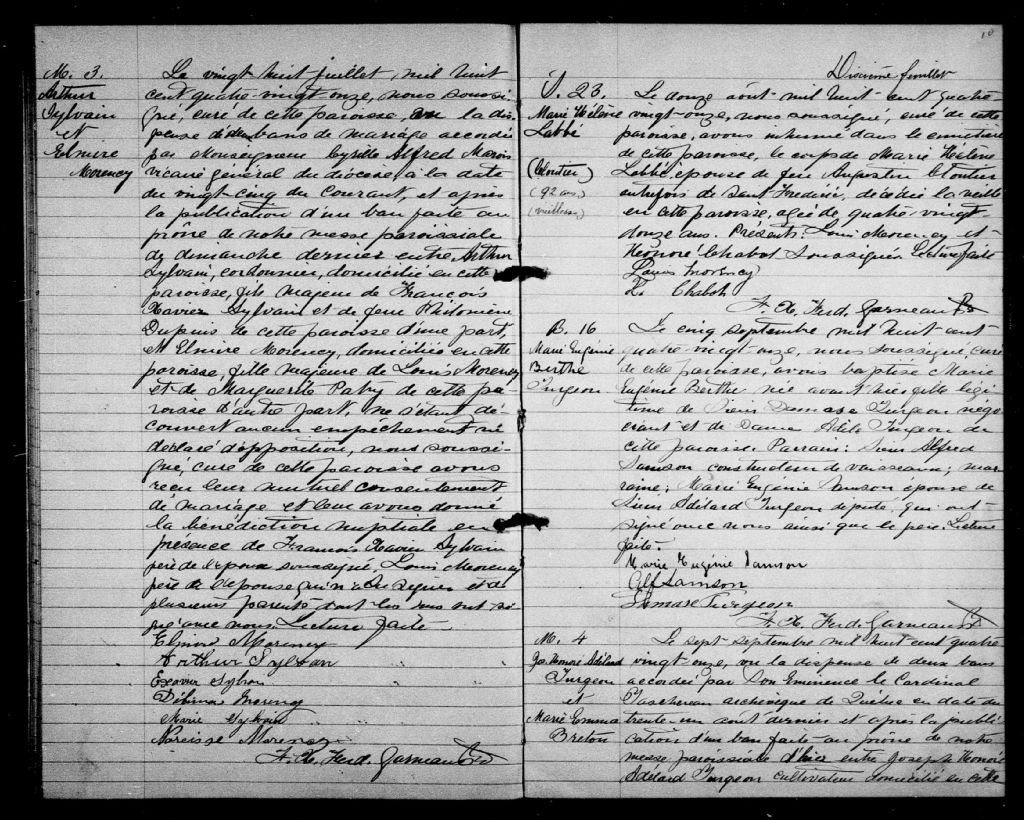 M. 3.
Arthur
Sylvain
et
Elmire
Morency
Le vingt huit juillet, mil huit
cent quatre-vingt onze, nous soussi-
gné, curé de cette paroisse, vu la dis-
pense de deux bans de mariage accordée
par Monseigneur Cyrille Alfred Marois
vicaire général du diocèse, à la date
du vingt-cinq du courant, et après
la publication d'un ban faite au
prône de notre messe paroissiale
de dimanche dernier entre Arthur
Sylvain, cordonnier, domicilié en cette
paroisse, fils majeur de François
Xavier Sylvain et de feue Philomène
Dupuis de cette paroisse d'une part,
et Elmire Morency, domiciliée en cette
paroisse, fille majeure de Louis Morency
et de Marguerite Patry de cette pa-
roisse d'autre part, ne s'étant dé-
couvert aucun empêchement ni
déclaré d'opposition, nous soussi-
gné, curé de cette paroisse avons
reçu leur mutuel consentement
de mariage et leur avons donné
la bénédiction nuptiale en
présence de François Xavier Sylvain
père de l'époux soussigné, Louis Morency
père de l'épouse qui n'a su signer et de
plusieurs parents dont les uns ont si-
gné avec nous. Lecture faite.
Elmire Morency
Arthur Sylvain
Exavier Sylvain
Délima Morency
Marie Sylvain
Narcisse Morency
F. X. Ferd. Garneau Ptre
10
Dixième feuillet
S. 23.
Marie Hélène
Labbé
(Cloutier)
(92 ans)
(vieillesse)
Le douze août mil huit cent quatre-
vingt-onze, nous soussigné, curé de cette
paroisse, avons inhumé dans le cimetière
de cette paroisse, le corps de Marie Hélène
Labbé, épouse de feu Augustin Cloutier
autrefois de Saint Frédéric, décédée la veille
en cette paroisse, agée de quatre-vingt-
douze ans. Présents: Louis Morency et
Honoré Chabot soussignés. Lecture faite
Louis Morency
H. Chabot
F. X. Ferd. Garneau Ptre
B. 16
Marie Eugénie
Berthe
Turgeon
Le cinq septembre mil huit cent
quatre-vingt-onze, nous soussigné, curé
de cette paroisse, avons baptisé Marie
Eugénie Berthe née avant hier, fille légi-
time de Sieur Damase Turgeon négo-
ciant et de Dame Adèle Turgeon de
cette paroisse. Parrain: Sieur Alfred
Samson constructeur de vaisseaux; mar-
raine; Marie Eugénie Samson épouse de
Sieur Adélard Turgeon député, qui ont
signé avec nous ainsi que le père. Lecture
faite.
Marie Eugénie Samson
Alf Samson
Damase Turgeon
F. X. Ferd. Garneau Ptre
M. 4
Jos. Honoré Adélard
Turgeon
et
Marie Emma
Breton
Le sept septembre mil huit cent quatre
vingt-onze, vu la dispense de deux bans
accordée par Son Eminence le Cardinal
Taschereau archevêque de Québec en date du
trente-un août dernier et après la publi-
cation d'un ban faite au prône de notre
messe paroissiale d'hier entre Joseph Honoré
Adélard Turgeon cultivateur domicilié en cette